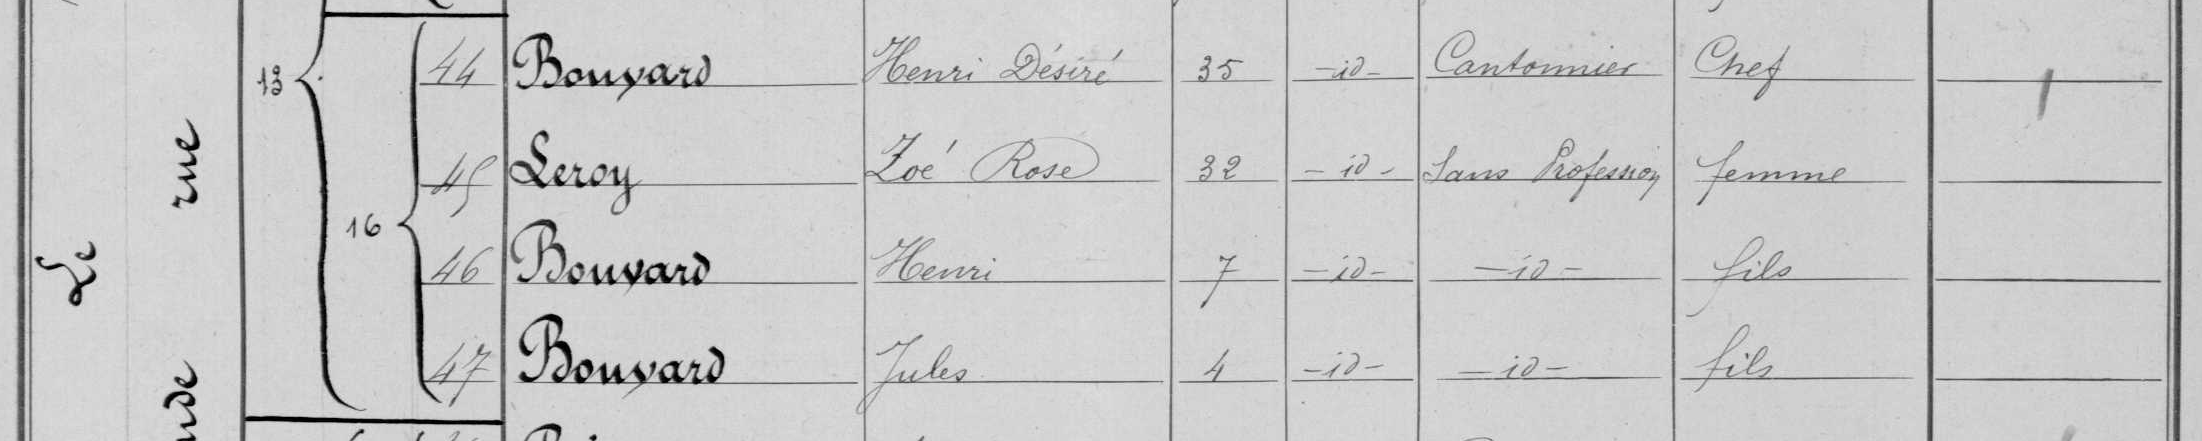 44 Bouvard Henri Désiré 35 -id- Cantonnier Chef
13
45 Leroy Zoé Rose 32 -id- Sans Profession femme
16
46 Bouvard Henri 7 -id- -id- fils
47 Bouvard Jules 4 -id- -id- fils
Le
rue